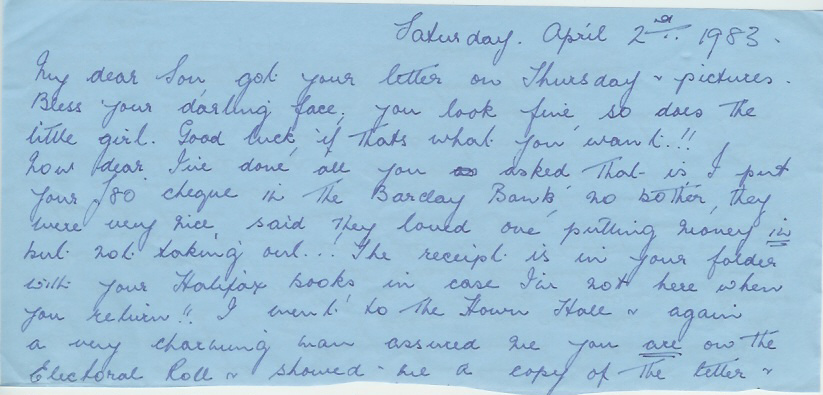 Saturday. April 2nd. 1983.
My dear Son got your letter on Thursday & pictures.
Bless your darling face, you look fine so does the
little girl. Good luck, if thats what you want.!!
Now dear, I've done all you asked that is I put
your £80 cheque in the Barclay Bank no bother, they
were very nice, said they loved one putting money in
but not taking out..! The receipt is in your folder
with your Halifax books in case I'm not here when
you return!! I went to the Town Hall & again
a very charming man assured me you are on the
Electoral Roll & showed me a copy of the letter &